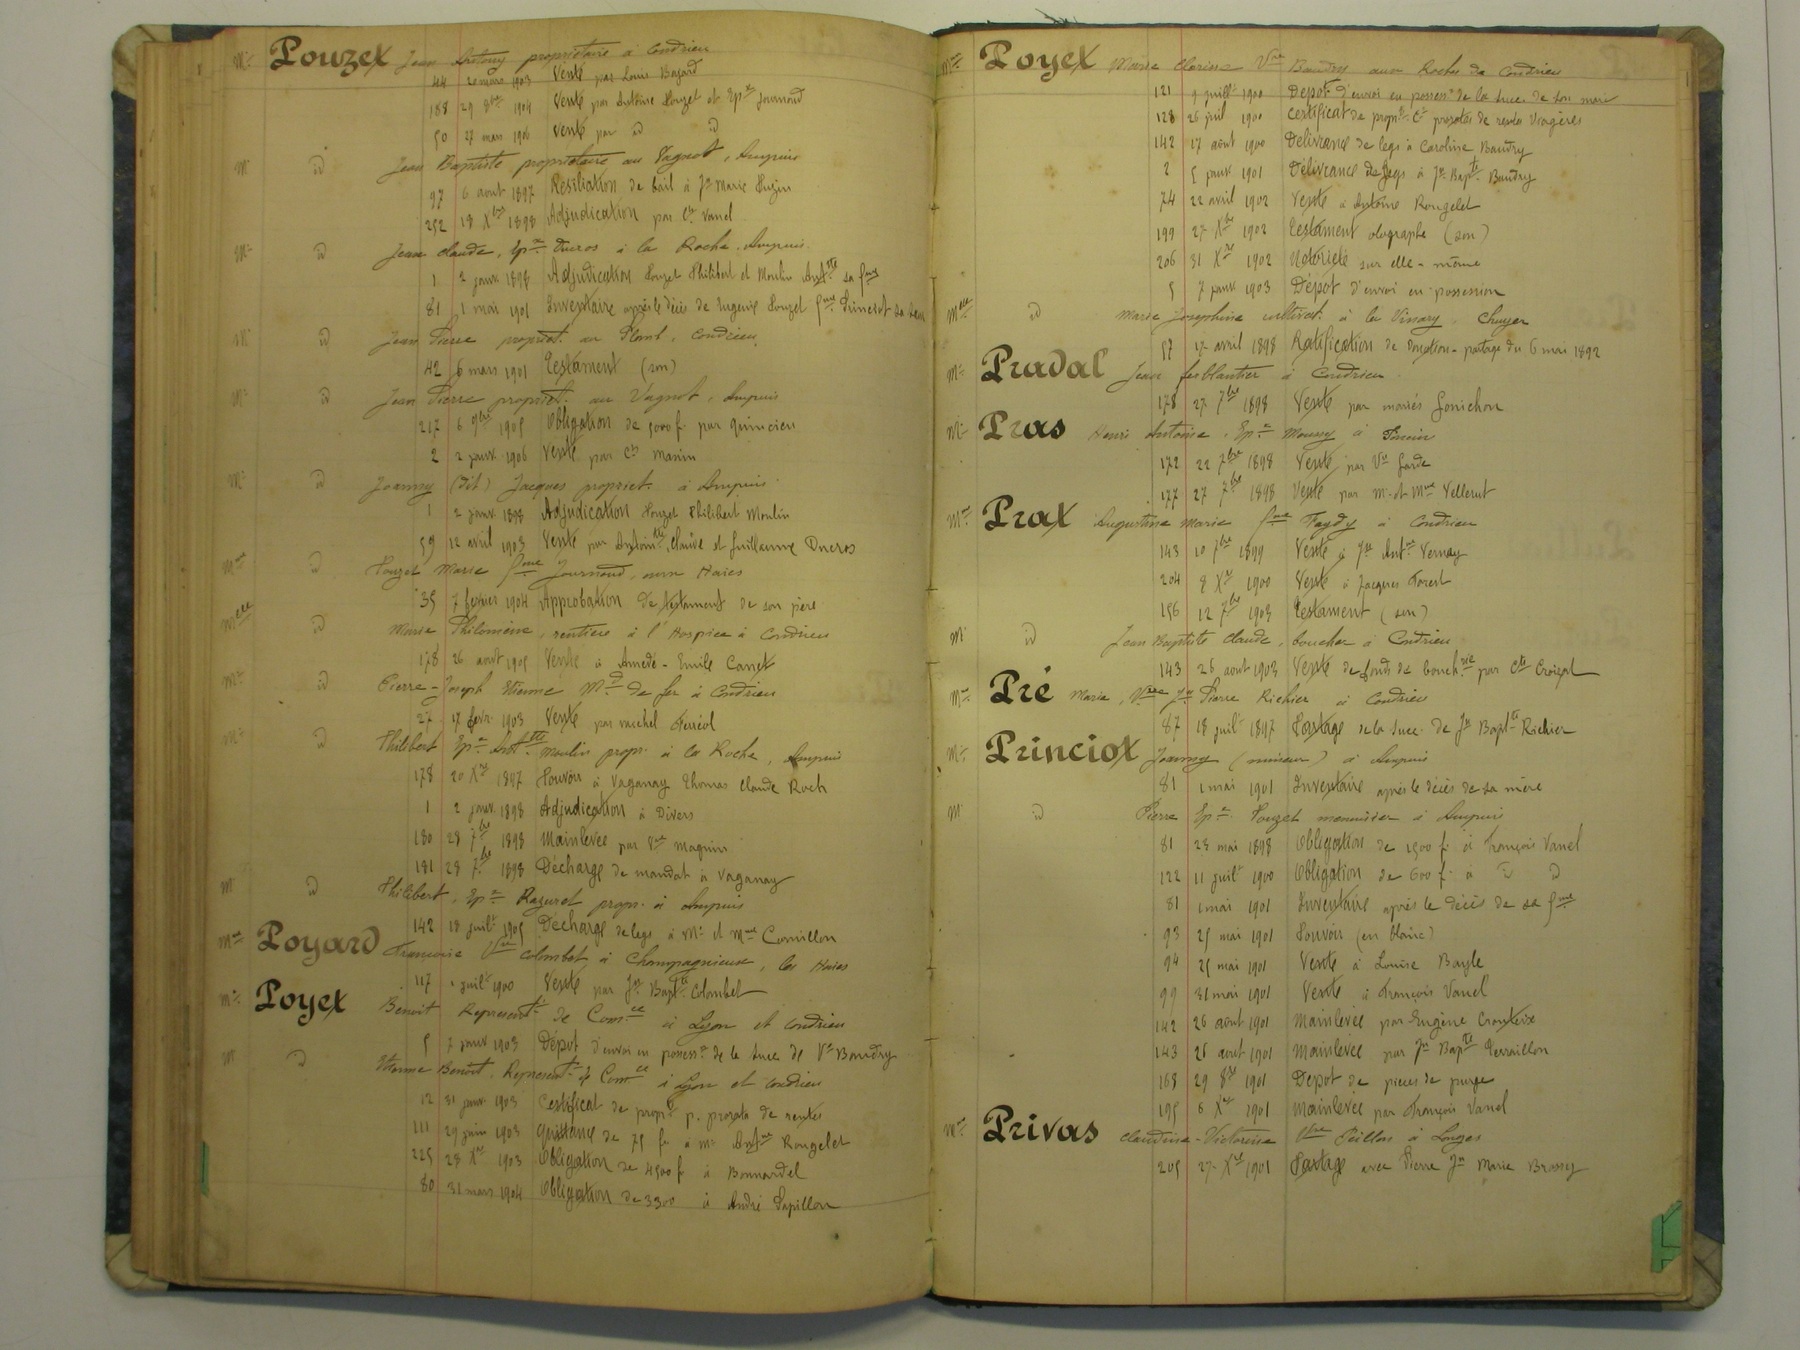 Mr Pouzet Jean Antony propriétaire à Condrieu
44 20 mars 1903 Vente par Louis Bazard
188 29 8bre 1904 Vente par Antoine Pouzet et Epse Journoud
50 27 mars 1906 Vente par id id
Mr id Jean Baptiste propriétaire au Vagnot, Ampuis
97 6 août 1897 Résiliation de bail à Jn Marie
252 18 Xbre 1898 Adjudication par Ct Vanel
Mr id Jean Claude, Epx Ducros à la Roche, Ampuis
1 2 janv. 1898 Adjudication Pouzet Philibert et Moulin Antte sa fme
81 1 mai 1901 Inventaire après le décès de Eugénie Pouzet fme Princiot sa
Mr id Jean Pierre propriét. au Plant, Condrieu
42 6 mars 1901 Testament (son)
Mr id Jean Pierre propriét. au Vagnot, Ampuis
217 6 9bre 1905 Obligation de 5000 f. par Quincieu
2 2 janv. 1906 Vente par Cts Manin
Mr id Joanny (dit) Jacques propriet. à Ampuis
1 2 janv. 1898 Adjudication Pouzet Philibert Moulin
59 12 avril 1903 Vente par Antointte, Claude et Guillaume Ducros
Mme id Pouzet Marie fme Journoud, aux Haies
35 7 fevrier 1904 Approbation de testament de son père
Melle id Marie Philomène, rentière à l'Hospice à Condrieu
178 26 août 1905 Vente à Amedé-Emile Canet
Mr id Pierre-Joseph Etienne Md de fer à Condrieu
27 17 fevr. 1903 Vente par Ferréol
Mr id Philibert Epx Antte Moulin propr. à la Roche, Ampuis
178 20 Xbre 1897 Pouvoir à Vaganay Thomas Claude Roch
1 2 janv. 1898 Adjudication à Divers
180 28 7bre 1898 Mainlevée par Maquin
181 28 7bre 1898 Décharge de mandat à Vaganay
Mr id Philibert, Epx Razuret propr. à Ampuis
142 18 juilt 1905 Décharge de legs à Mr et Mme Cornillon
Mme Poyard Francoise Vve Colombet à Champagnieux, les Haies
117 juilt 1900 Vente par Jn Baptte Colombet
Mr Poyet Benoit Représentt de Comce à Lyon et Condrieu
5 7 janv 1903 Dépot d'envoi en possesson de la succ de Ve Baudry
Mr id Etienne Benoit, Représentt de Comce à Lyon et Condrieu
12 31 janv. 1903 Certificat de propté p. prorata de rentes
111 29 juin 1903 Quittance de 75 fr à Mr Antne Rougelet
225 28 Xbre 1903 Obligation de 4500 f à Bonnardel
80 31 mars 1904 Obligation de 3300 à André Papillon
Mme Poyet Marie Clarisse Vve Baudry aux Roches de Condrieu
121 9 juillt 1900 Dépot d'envoi en possesson de la succ. de son mari
128 26 juil 1900 Certificat de propté Ct prorata de rentes Viagères
142 17 août 1900 Délivrance de legs à Caroline Baudry
2 5 janv. 1901 Délivrance de legs à Jn Baptte Baudry
74 22 avril 1902 Vente à Antoine Rougelet
199 27 Xbre 1902 Testament olographe (son)
206 31 Xbre 1902 Notoriété sur elle-même
5 7 janv 1903 Dépot d'envoi en possession
Melle id Marie Josephine cultivat. à la Vinary. Chuyer
57 17 avril 1898 Ratification de donation-partage du 6 mai 1892
Mr Pradal Jean ferblantier à Condrieu
178 27 7bre 1898 Vente par mariés Gonichon
Mr Pras Henri Antoine, Epx à
172 22 7bre 1898 Vente par Vve Garde
177 27 7bre 1898 Vente par Mr et Mme Vellerut
Mme Prat Augustine Marie fme Faydy à Condrieu
143 10 7bre 1899 Vente à Jn Antne Vernay
204 8 Xbre 1900 Vente à Jacques Forest
156 12 7bre 1903 Testament (son)
Mr id Jean Baptiste Claude, boucher à Condrieu
143 26 août 1903 Vente de fonds de bouchrie par Cts Croizat
Mme Pré Marie, Vve Jn Pierre Richier à Condrieu
87 18 juilt 1897 Partage de la succ. de Jn Baptte Richier
Mr Princiot Joanny (mineur) à Ampuis
81 1 mai 1901 Inventaire après le décès de sa mère
Mr id Pierre Epx Pouzet menuisier à Ampuis
81 23 mai 1898 Obligation de 1500 f. à François Vanel
122 11 juilt 1900 Obligation de 600 f. à id id
81 1 mai 1901 Inventaire après le décès de sa fme
93 25 mai 1901 Pouvoir (en blanc)
94 25 mai 1901 Vente à Louise Bayle
99 31 mai 1901 Vente à François Vanel
142 26 août 1901 Mainlevée par Eugène
143 26 août 1901 Mainlevée par Jn Baptte Perraillon
168 29 8bre 1901 Dépot de pièces de purge
195 6 Xbre 1901 Mainlevée par François Vanel
Mme Privas Claudine-Victorine Vve Peillon à Longes
205 27 Xbre 1901 Partage avec Pierre Jn Marie Brossy